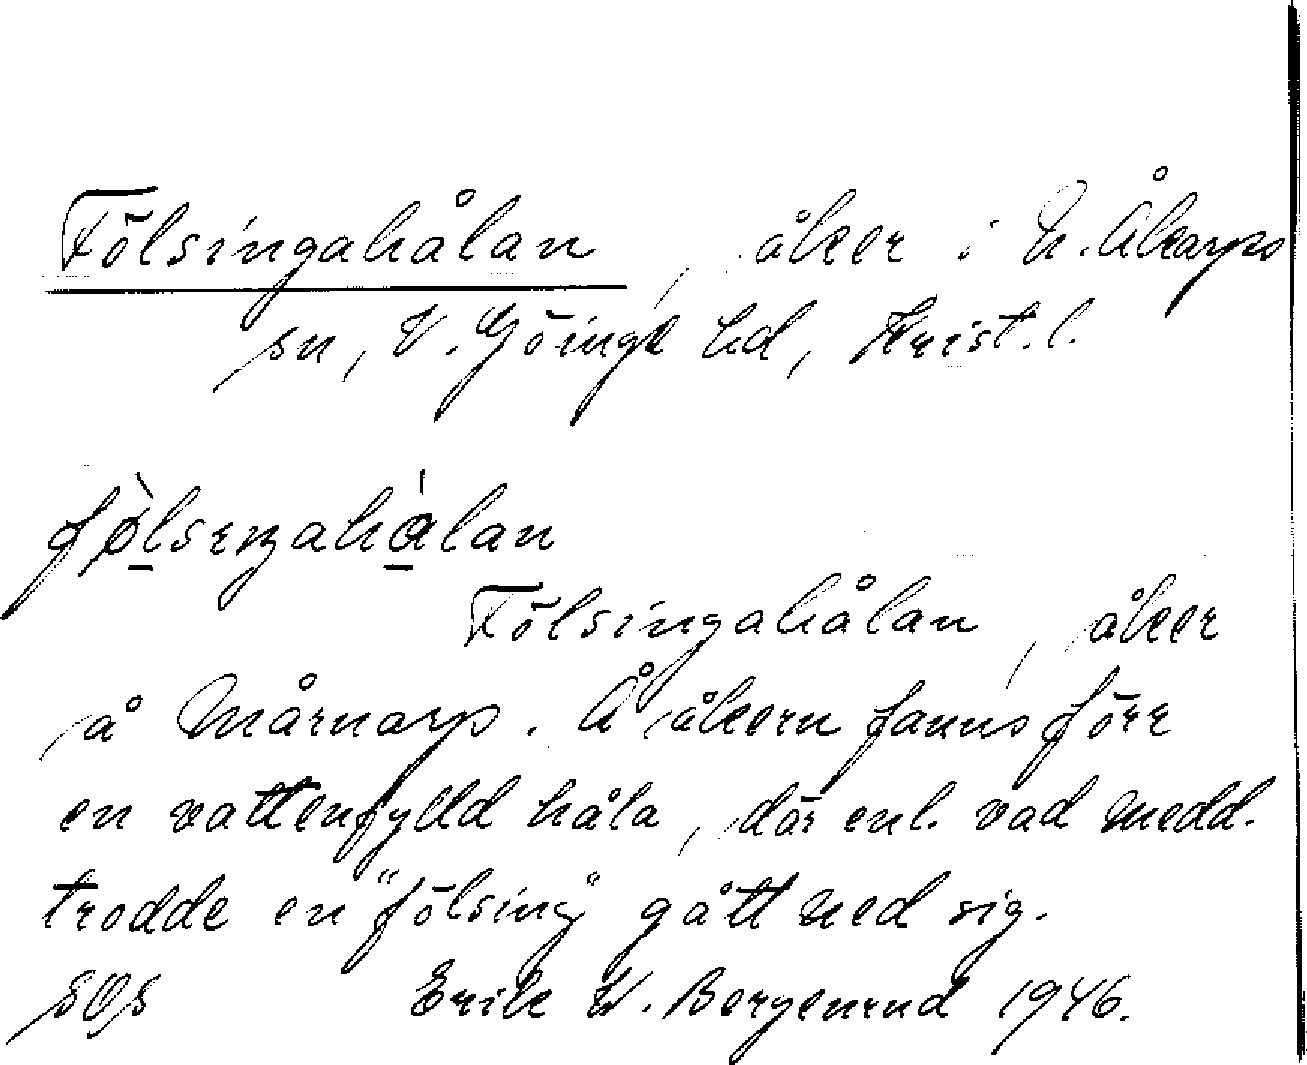 Fölsingahålan, åker i N. Åkarps
sn, V. Göinge hd, Krist. l.
fø̀lsɪŋahálan
Fölsingahålan, åker
å Mårnarp. Å åkern fanns förr
en vattenfylld håla, där enl. vad medd.
trodde en "fölsing" gått ned sig.
SOS Erik W. Bergenrud 1946.